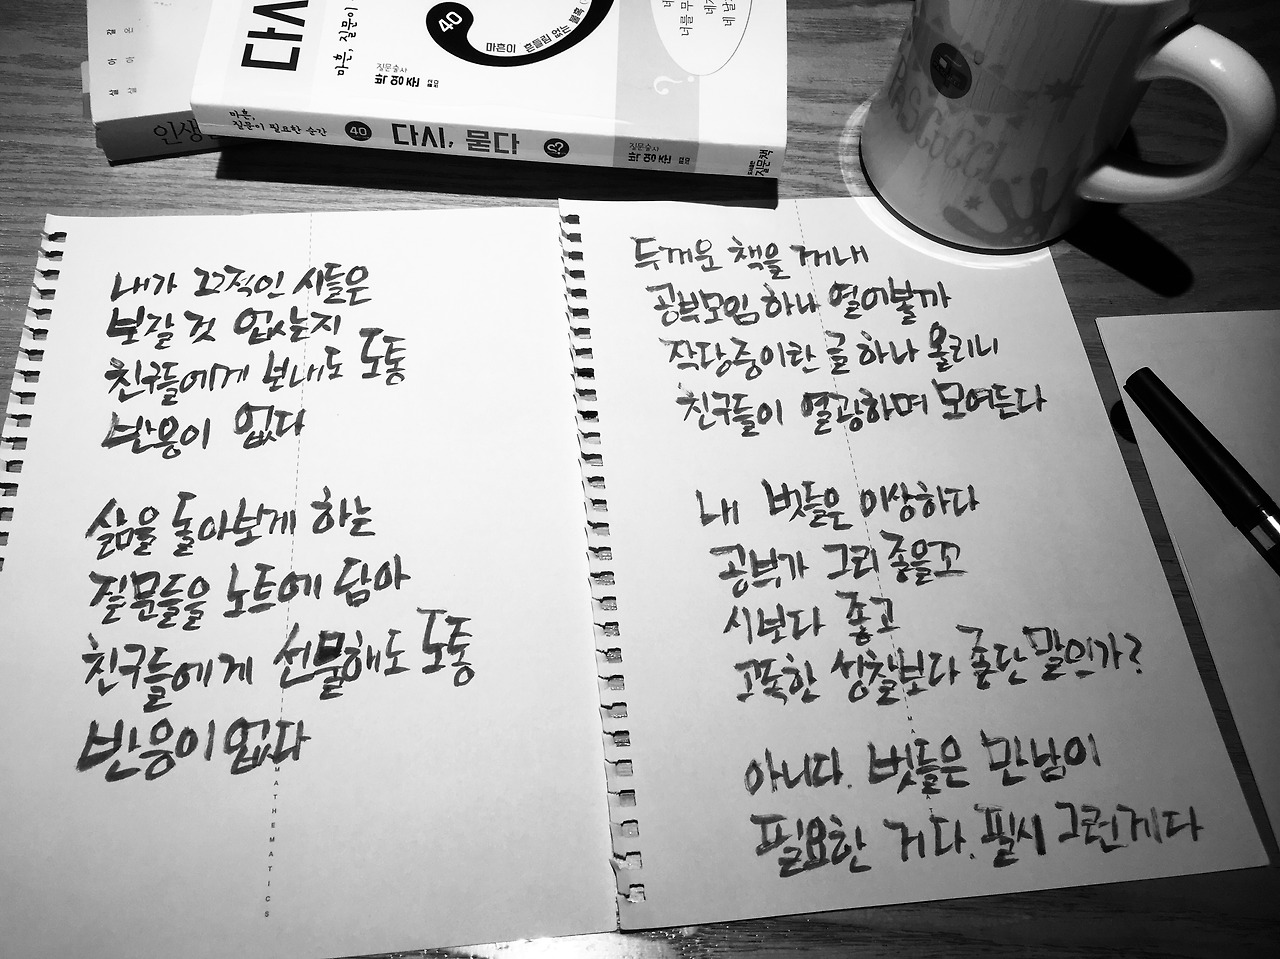 다시
마흔, 질문이
40
마흔이 흔들림 없는 불혹
질문술사
박영준
인생
마흔,
질문이 필요한 순간
40
다시, 묻다
질문술사
박영준
질문책
내가 끄적인 시들은
보잘 것 없는지
친구들에게 보내도 도통
반응이 없다
삶을 돌아보게 하는
질문들을 노트에 담아
친구들에게 선물해도 도통
반응이 없다
MATHEMATICS
두꺼운 책을 꺼내
공부모임 하나 열어볼까
작당중이란 글 하나 올리니
친구들이 열광하며 모여든다
내 벗들은 이상하다
공부가 그리 좋을꼬
시보다 좋고
고독한 성찰보다 좋단 말인가?
아니다. 벗들은 만남이
필요한 거다. 필시 그런게다